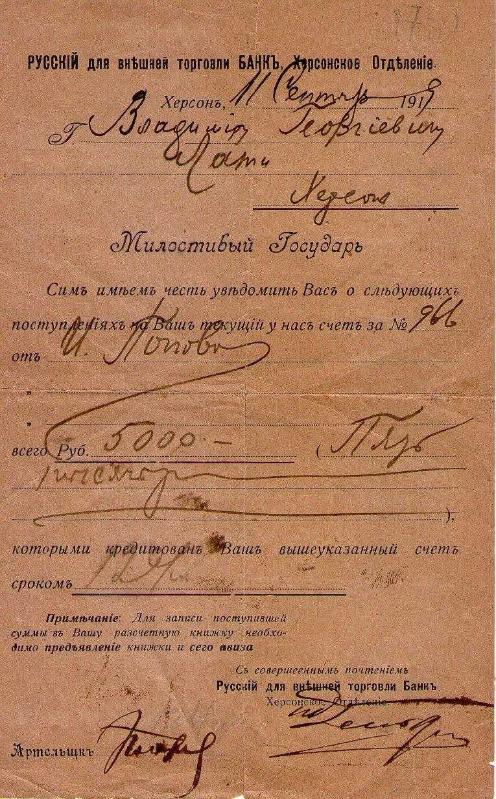 РУССКІЙ для внѣшней торговли БАНКЪ, Херсонское Отдѣленіе
Херсонъ, 11 Сентябр 191
Г Владимір Георгіевичу
Херсон
Милостивый Государь
Симъ имѣемъ честь увѣдомить Васъ о слѣдующихъ
поступленіяхъ на Вашъ текущій у насъ счетъ за № 966
отъ И. Попова
"
"
всего Руб. 5000 - (Пять
тысячъ
),
которыми кредитованъ Вашъ вышеуказанный счетъ
срокомъ 12
Примѣчаніе: Для записи поступившей
суммы въ Вашу разсчетную книжку необхо-
димо предъявленіе книжки и сего авиза
Съ совершеннымъ почтеніемъ
Русскій для внѣшней торговли Банкъ
Херсонское Отдѣленіе
Артельщикъ